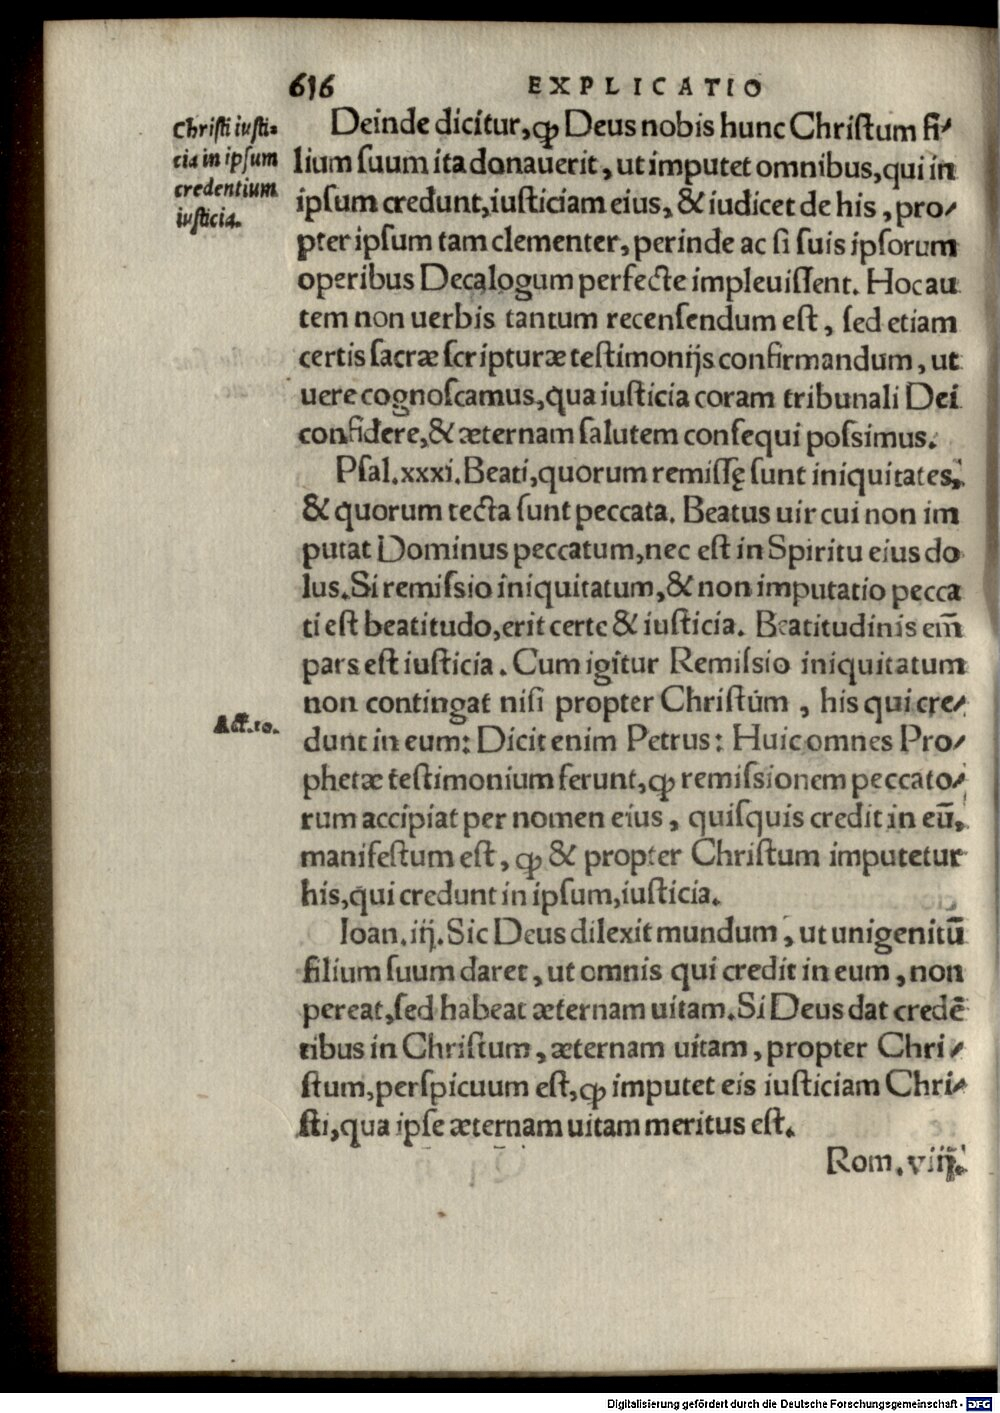 616
EXPLICATIO
Christi iusti⸗
cia in ipsum
credentium
iusticia.
Deinde dicitur, ꝙ Deus nobis hunc Christum fi⸗
lium suum ita donauerit, ut imputet omnibus, qui in
ipsum credunt, iusticiam eius, & iudicet de his, pro⸗
pter ipsum tam clementer, perinde ac si suis ipsorum
operibus Decalogum perfecte impleuissent. Hoc au
tem non uerbis tantum recensendum est, sed etiam
certis sacræ scripturæ testimonijs confirmandum, ut
uere cognoscamus, qua iusticia coram tribunali Dei
confidere, & æternam salutem consequi possimus.
Psal. xxxi. Beati, quorum remissę sunt iniquitates,
& quorum tecta sunt peccata. Beatus uir cui non im
putat Dominus peccatum, nec est in Spiritu eius do
lus. Si remissio iniquitatum, & non imputatio pecca
ti est beatitudo, erit certe & iusticia. Beatitudinis em̄
pars est iusticia. Cum igitur Remissio iniquitatum
non contingat nisi propter Christum, his qui cre⸗
dunt in eum: Dicit enim Petrus: Huic omnes Pro⸗
Act. 10.
phetæ testimonium ferunt, ꝙ remissionem peccato⸗
rum accipiat per nomen eius, quisquis credit in eū,
manifestum est, ꝙ & propter Christum imputetur
his, qui credunt in ipsum, iusticia.
Ioan. iij. Sic Deus dilexit mundum, ut unigenitū
filium suum daret, ut omnis qui credit in eum, non
pereat, sed habeat æternam uitam. Si Deus dat credē
tibus in Christum, æternam uitam, propter Chri⸗
stum, perspicuum est, ꝙ imputet eis iusticiam Chri⸗
sti, qua ipse æternam uitam meritus est.
Rom. viij.
Digitalisierung gefördert durch die Deutsche Forschungsgemeinschaft - DFG